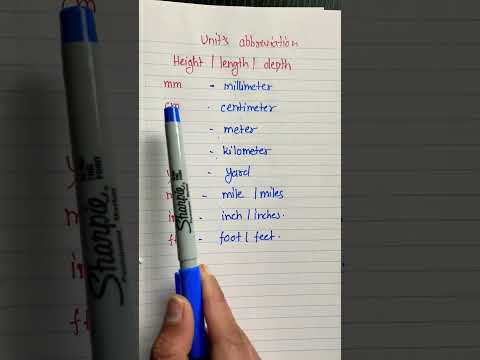 Unit's abbreviation
Height | length | depth
mm - millimeter
cm - centimeter
- meter
- kilometer
- yard
- mile | miles
- inch | inches.
- foot | feet.
Sharpie